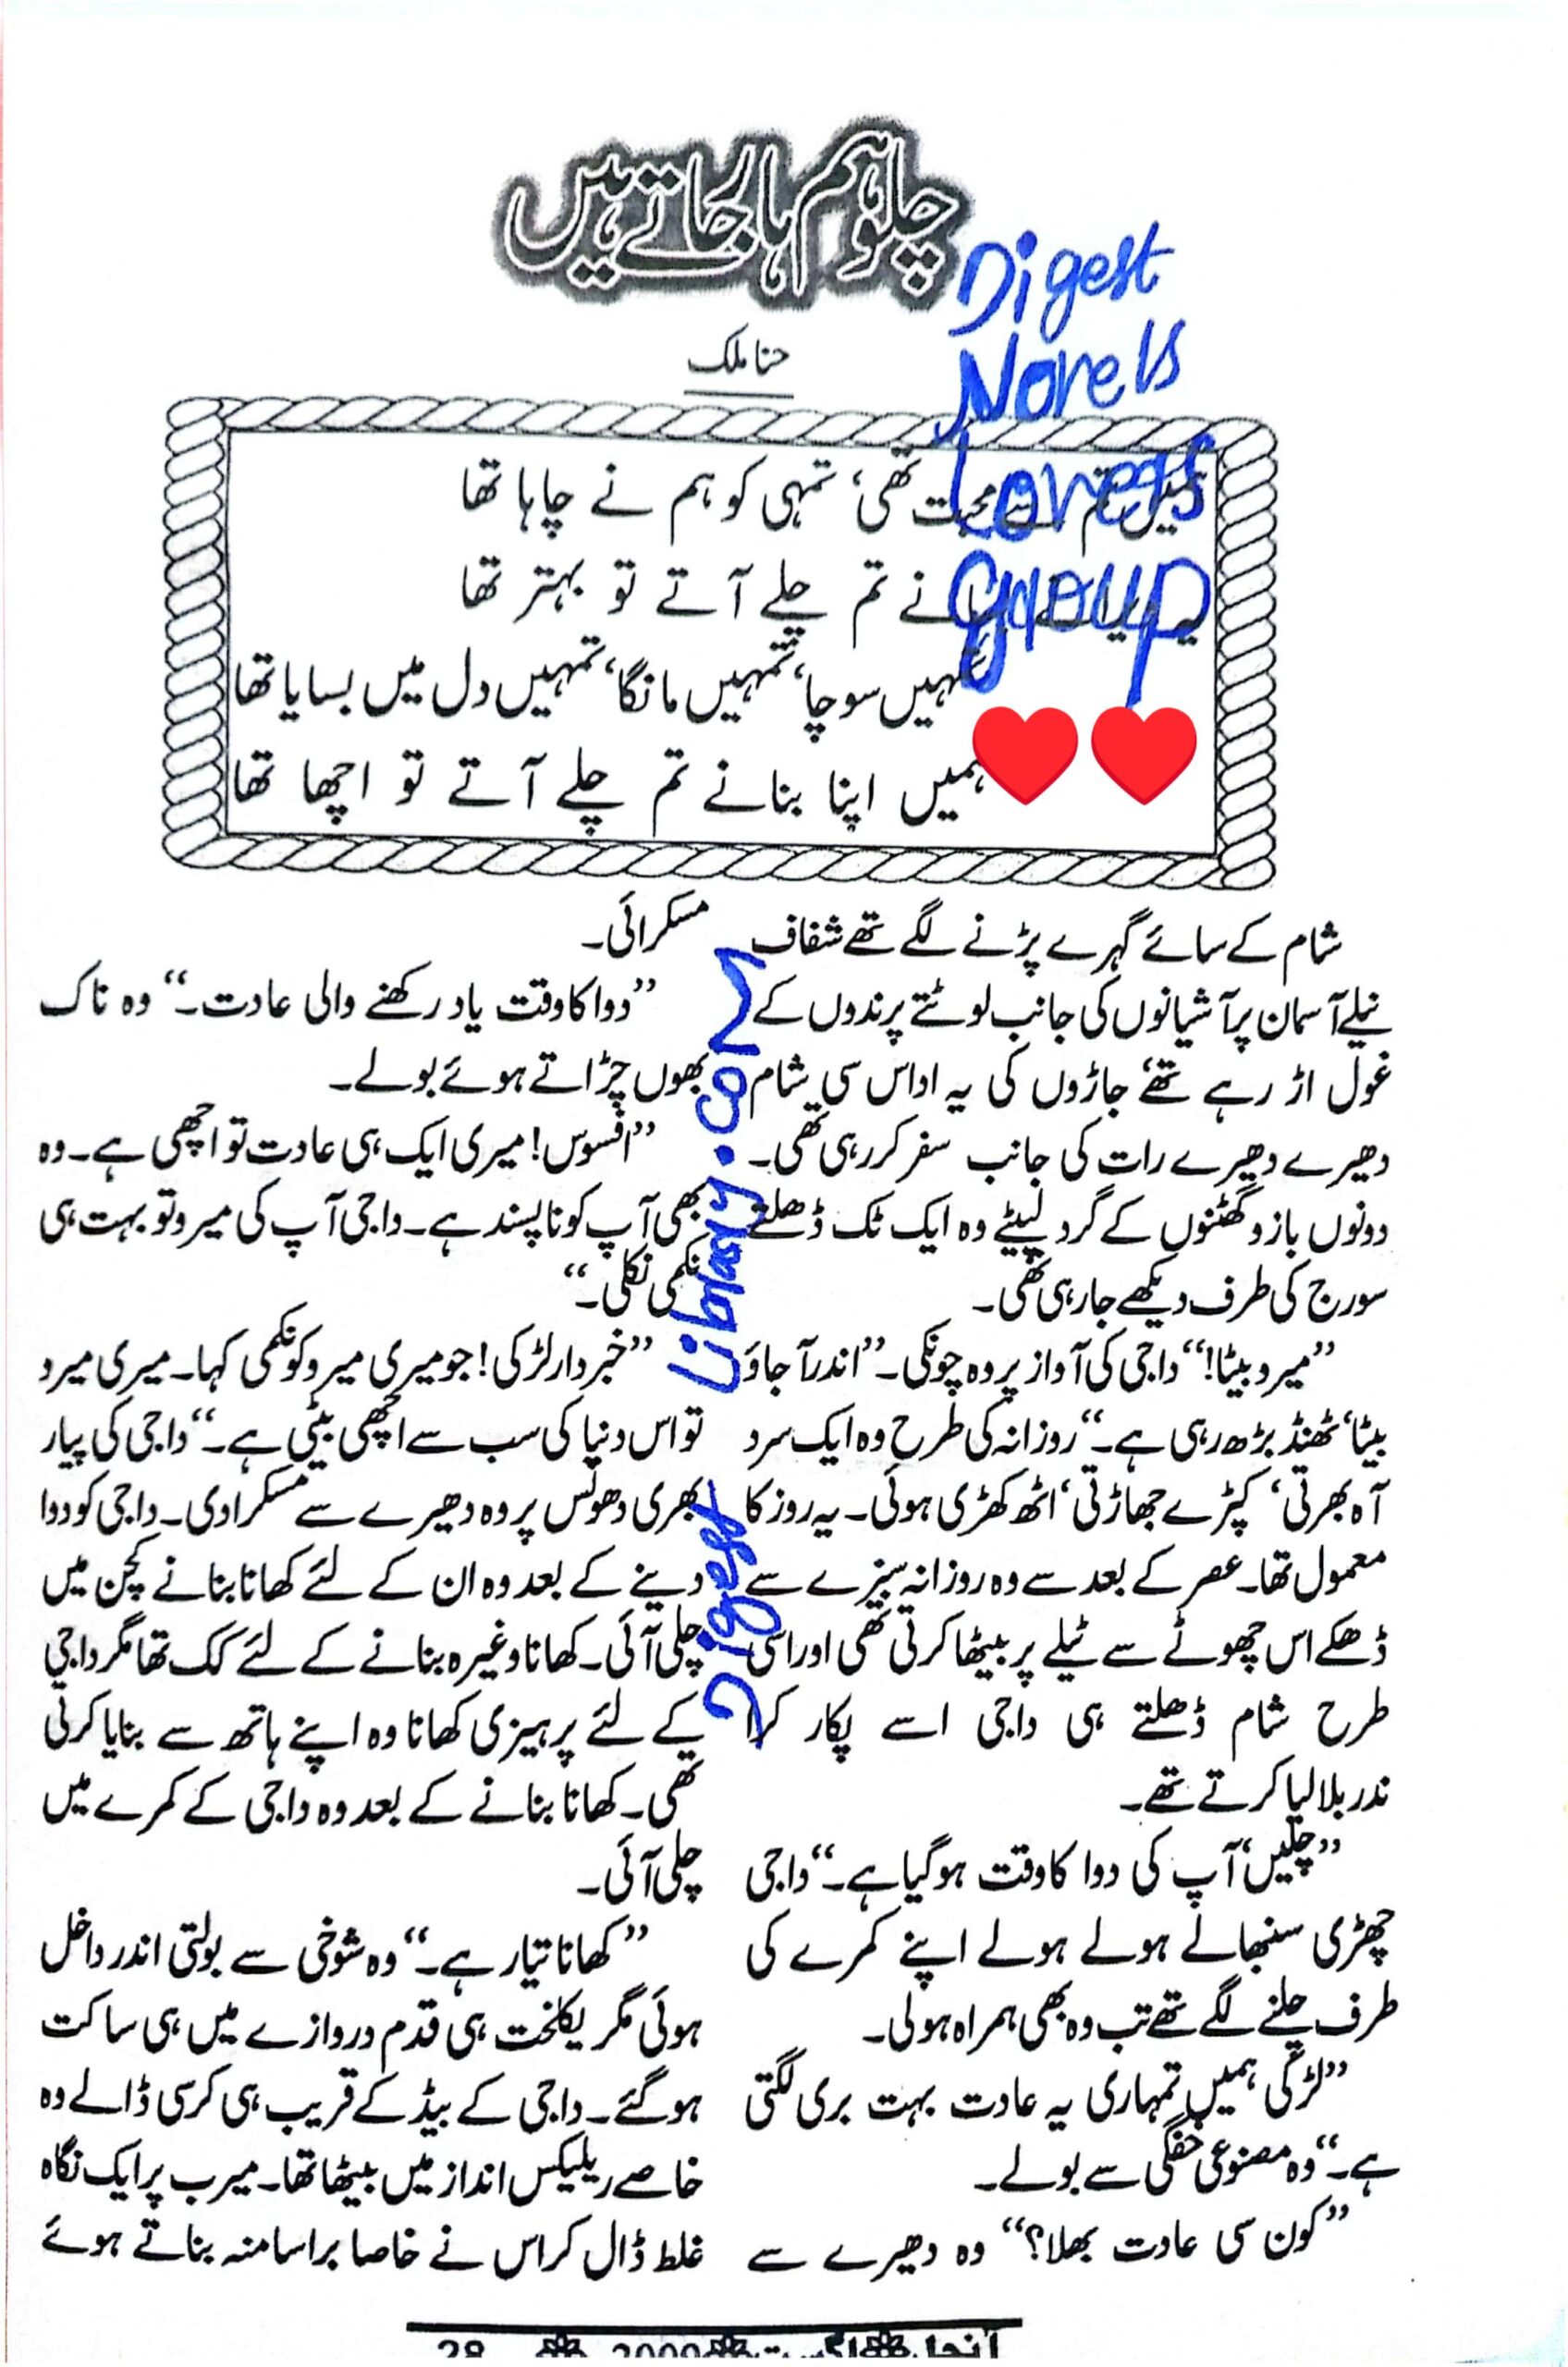 چلو ہم ہار جاتے ہیں
حنا ملک
Digest
Novels
Lovers
group
محبت تھی، تمہی کو ہم نے چاہا تھا
نے تم چلے آتے تو بہتر تھا
تمہیں سوچا، تمہیں مانگا، تمہیں دل میں بسایا تھا
ہمیں اپنا بنانے تم چلے آتے تو اچھا تھا
شام کے سائے گہرے پڑنے لگے تھے شفاف
نیلے آسمان پر آشیانوں کی جانب لوٹتے پرندوں کے
غول اڑ رہے تھے، جاڑوں کی یہ اداس سی شام
دھیرے دھیرے رات کی جانب سفر کر رہی تھی۔
دونوں بازو گھٹنوں کے گرد لپیٹے وہ ایک ٹک ڈھلتے
سورج کی طرف دیکھے جا رہی تھی۔
”میرو بیٹا!“ داجی کی آواز پر وہ چونکی۔ ”اندر آ جاؤ
بیٹا، ٹھنڈ بڑھ رہی ہے۔“ روزانہ کی طرح وہ ایک سرد
آہ بھرتی، کپڑے جھاڑتی، اٹھ کھڑی ہوئی۔ یہ روز کا
معمول تھا۔ عصر کے بعد سے وہ روزانہ سبزے سے
ڈھکے اس چھوٹے سے ٹیلے پر بیٹھا کرتی تھی اور اسی
طرح شام ڈھلتے ہی داجی اسے پکار کر
ندر بلا لیا کرتے تھے۔
”چلیں، آپ کی دوا کا وقت ہو گیا ہے۔“ داجی
چھڑی سنبھالے ہولے ہولے اپنے کمرے کی
طرف چلنے لگے تھے تب وہ بھی ہمراہ ہولی۔
”لڑکی ہمیں تمہاری یہ عادت بہت بری لگتی
ہے۔“ وہ مصنوعی خفگی سے بولے۔
”کون سی عادت بھلا؟“ وہ دھیرے سے
مسکرائی۔
”دوا کا وقت یاد رکھنے والی عادت۔“ وہ ناک
بھوں چڑاتے ہوئے بولے۔
”افسوس! میری ایک ہی عادت تو اچھی ہے۔ وہ
بھی آپ کو ناپسند ہے۔ داجی آپ کی میرو تو بہت ہی
نکمی نکلی۔“
”خبردار لڑکی! جو میری میرو کو نکمی کہا۔ میری میرد
تو اس دنیا کی سب سے اچھی بیٹی ہے۔“ داجی کی پیار
بھری دھونس پر وہ دھیرے سے مسکرا دی۔ داجی کو دوا
دینے کے بعد وہ ان کے لئے کھانا بنانے کچن میں
چلی آئی۔ کھانا وغیرہ بنانے کے لئے کک تھا مگر داجی
کے لئے پرہیزی کھانا وہ اپنے ہاتھ سے بنایا کرتی
تھی۔ کھانا بنانے کے بعد وہ داجی کے کمرے میں
چلی آئی۔
”کھانا تیار ہے۔“ وہ شوخی سے بولتی اندر داخل
ہوئی مگر یکلخت ہی قدم دروازے میں ہی ساکت
ہو گئے۔ داجی کے بیڈ کے قریب ہی کرسی ڈالے وہ
خاصے ریلیکس انداز میں بیٹھا تھا۔ میرب پر ایک نگاہ
غلط ڈال کر اس نے خاصا برا سا منہ بناتے ہوئے
Digest Library.com
آنچل اگست 2009 28